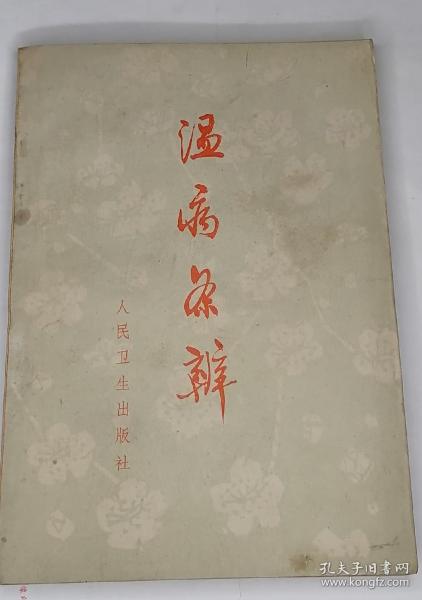 温病条辨
人民卫生出版社
孔夫子旧书网
www.kongfz.com